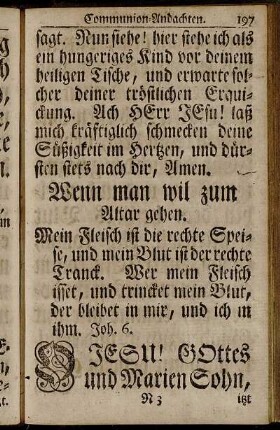 Communion-Andachten. 197
sagt. Nun siehe! hier stehe ich als
ein hungeriges Kind vor deinem
heiligen Tische, und erwarte sol-
cher deiner tröstlichen Erqui-
ckung. Ach HErr JEsu! laß
mich kräftiglich schmecken deine
Süßigkeit im Hertzen, und dür-
sten stets nach dir, Amen.
Wenn man wil zum
Altar gehen.
Mein Fleisch ist die rechte Spei-
se, und mein Blut ist der rechte
Tranck. Wer mein Fleisch
isset, und trincket mein Blut,
der bleibet in mir, und ich in
ihm. Joh. 6.
O JESU! GOttes
und Marien Sohn,
N 3 itzt